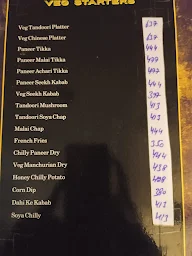 VEG STARTERS
Veg Tandoori Platter 537
Veg Chinese Platter 537
Paneer Tikka 444
Paneer Malai Tikka 477
Paneer Achari Tikka
Paneer Seekh Kabab 444
Veg Seekh Kabab 397
Tandoori Mushroom 413
Tandoori Soya Chap 413
Malai Chap 444
French Fries 350
Chilly Paneer Dry 444
Veg Manchurian Dry 438
Honey Chilly Potato 408
Corn Dip 380
Dahi Ke Kabab 413
Soya Chilly 413